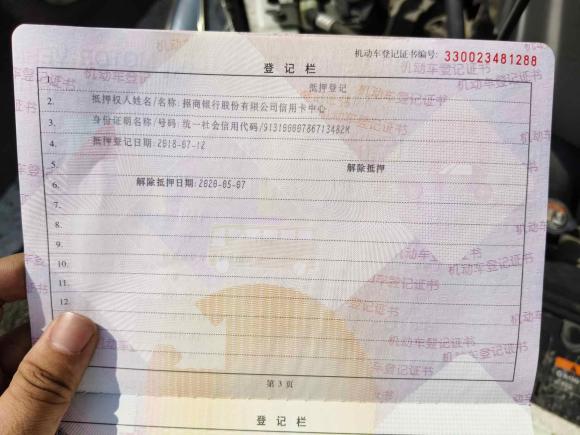 机动车登记证书编号: 330023481288
登记栏
1. 抵押登记
2. 抵押权人姓名/名称:招商银行股份有限公司信用卡中心
3. 身份证明名称/号码:统一社会信用代码/91310000786713482M
4. 抵押登记日期:2018-07-12
5. 解除抵押
6. 解除抵押日期:2020-05-07
7.
8.
9.
10.
11.
12.
第3页
登记栏
机动车登记证书
机动车登记证书
机动车登记证书
机动车登记证书
机动车登记证书